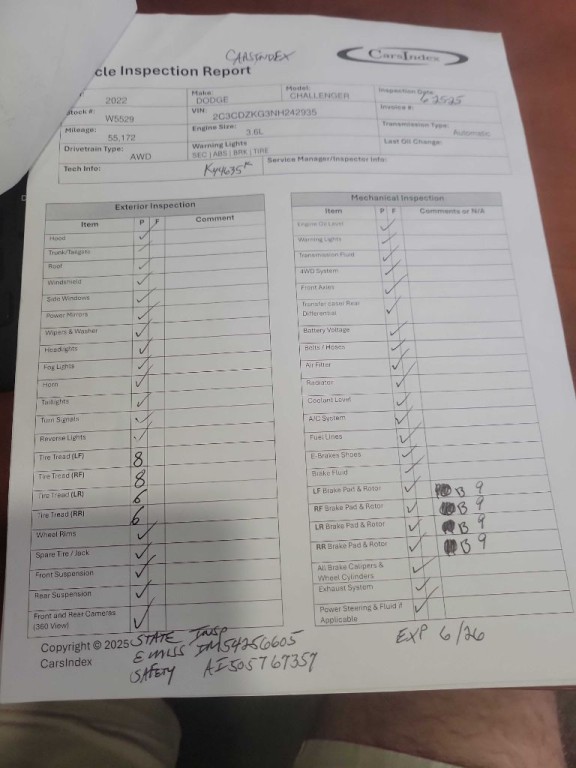 CARSINDEX
CarsIndex
cle Inspection Report
2022
Make:
DODGE
Model:
CHALLENGER
Inspection Date:
6 2525
Stock #:
W5529
VIN:
2C3CDZKG3NH242935
Invoice #:
Mileage:
55,172
Engine Size:
3.6L
Transmission Type:
Automatic
Drivetrain Type:
AWD
Warning Lights
SEC | ABS | BRK | TIRE
Last Oil Change:
Tech Info:
Service Manager/Inspector Info:
Exterior Inspection
Item P F Comment
Hood
Trunk/Tailgate
Roof
Windshield
Side Windows
Power Mirrors
Wipers & Washer
Headlights
Fog Lights
Horn
Taillights
Turn Signals
Reverse Lights
Tire Tread (LF) 8
Tire Tread (RF) 8
Tire Tread (LR) 6
Tire Tread (RR) 6
Wheel Rims
Spare Tire / Jack
Front Suspension
Rear Suspension
Front and Rear Cameras
(360 View)
Mechanical Inspection
Item P F Comments or N/A
Engine Oil Level
Warning Lights
Transmission Fluid
4WD System
Front Axles
Transfer case/ Rear
Differential
Battery Voltage
Belts / Hoses
Air Filter
Radiator
Coolant Level
A/C System
Fuel Lines
E-Brakes Shoes
Brake Fluid
LF Brake Pad & Rotor B 9
RF Brake Pad & Rotor B 9
LR Brake Pad & Rotor B 9
RR Brake Pad & Rotor B 9
All Brake Calipers &
Wheel Cylinders
Exhaust System
Power Steering & Fluid if
Applicable
Copyright © 2025
CarsIndex
STATE INSP
EMISS IM54256605
SAFETY AI505767357
EXP 6/26